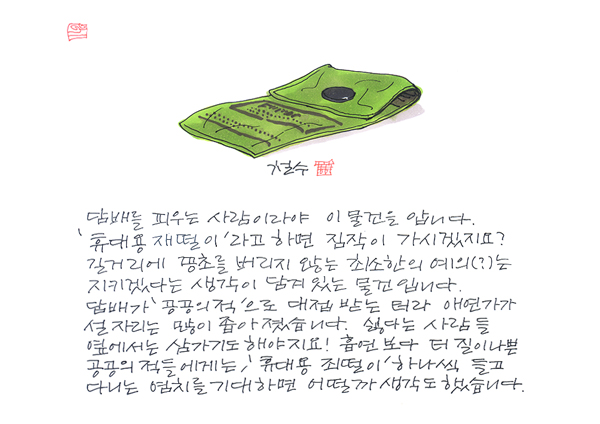 기범수
담배를 피우는 사람이라야 이 물건을 압니다.
'휴대용 재떨이'라고 하면 짐작이 가시겠지요?
길거리에 꽁초를 버리지 않는 최소한의 예의(?)는
지키겠다는 생각이 담겨 있는 물건입니다.
담배가 '공공의 적'으로 대접 받는 터라 애연가가
설 자리는 많이 좁아졌습니다. 싫다는 사람들
옆에서는 삼가기도 해야지요! 흡연보다 더 질이 나쁜
공공의 적들에게는, '휴대용 죄떨이' 하나씩 들고
다니는 염치를 기대하면 어떨까 생각도 했습니다.